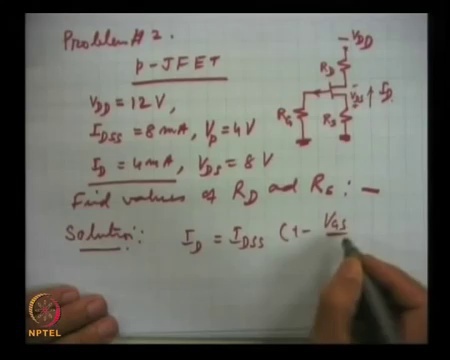 Problem # 2.
p-JFET
V_DD = 12 V,
I_DSS = 8 mA, V_p = 4V
I_D = 4 mA, V_DS = 8 V
Find values of R_D ad R_S : —
Solution:: I_D = I_DSS (1 - V_GS
- V_DD
R_D
V_DS
I_D
R_G
R_S
NPTEL